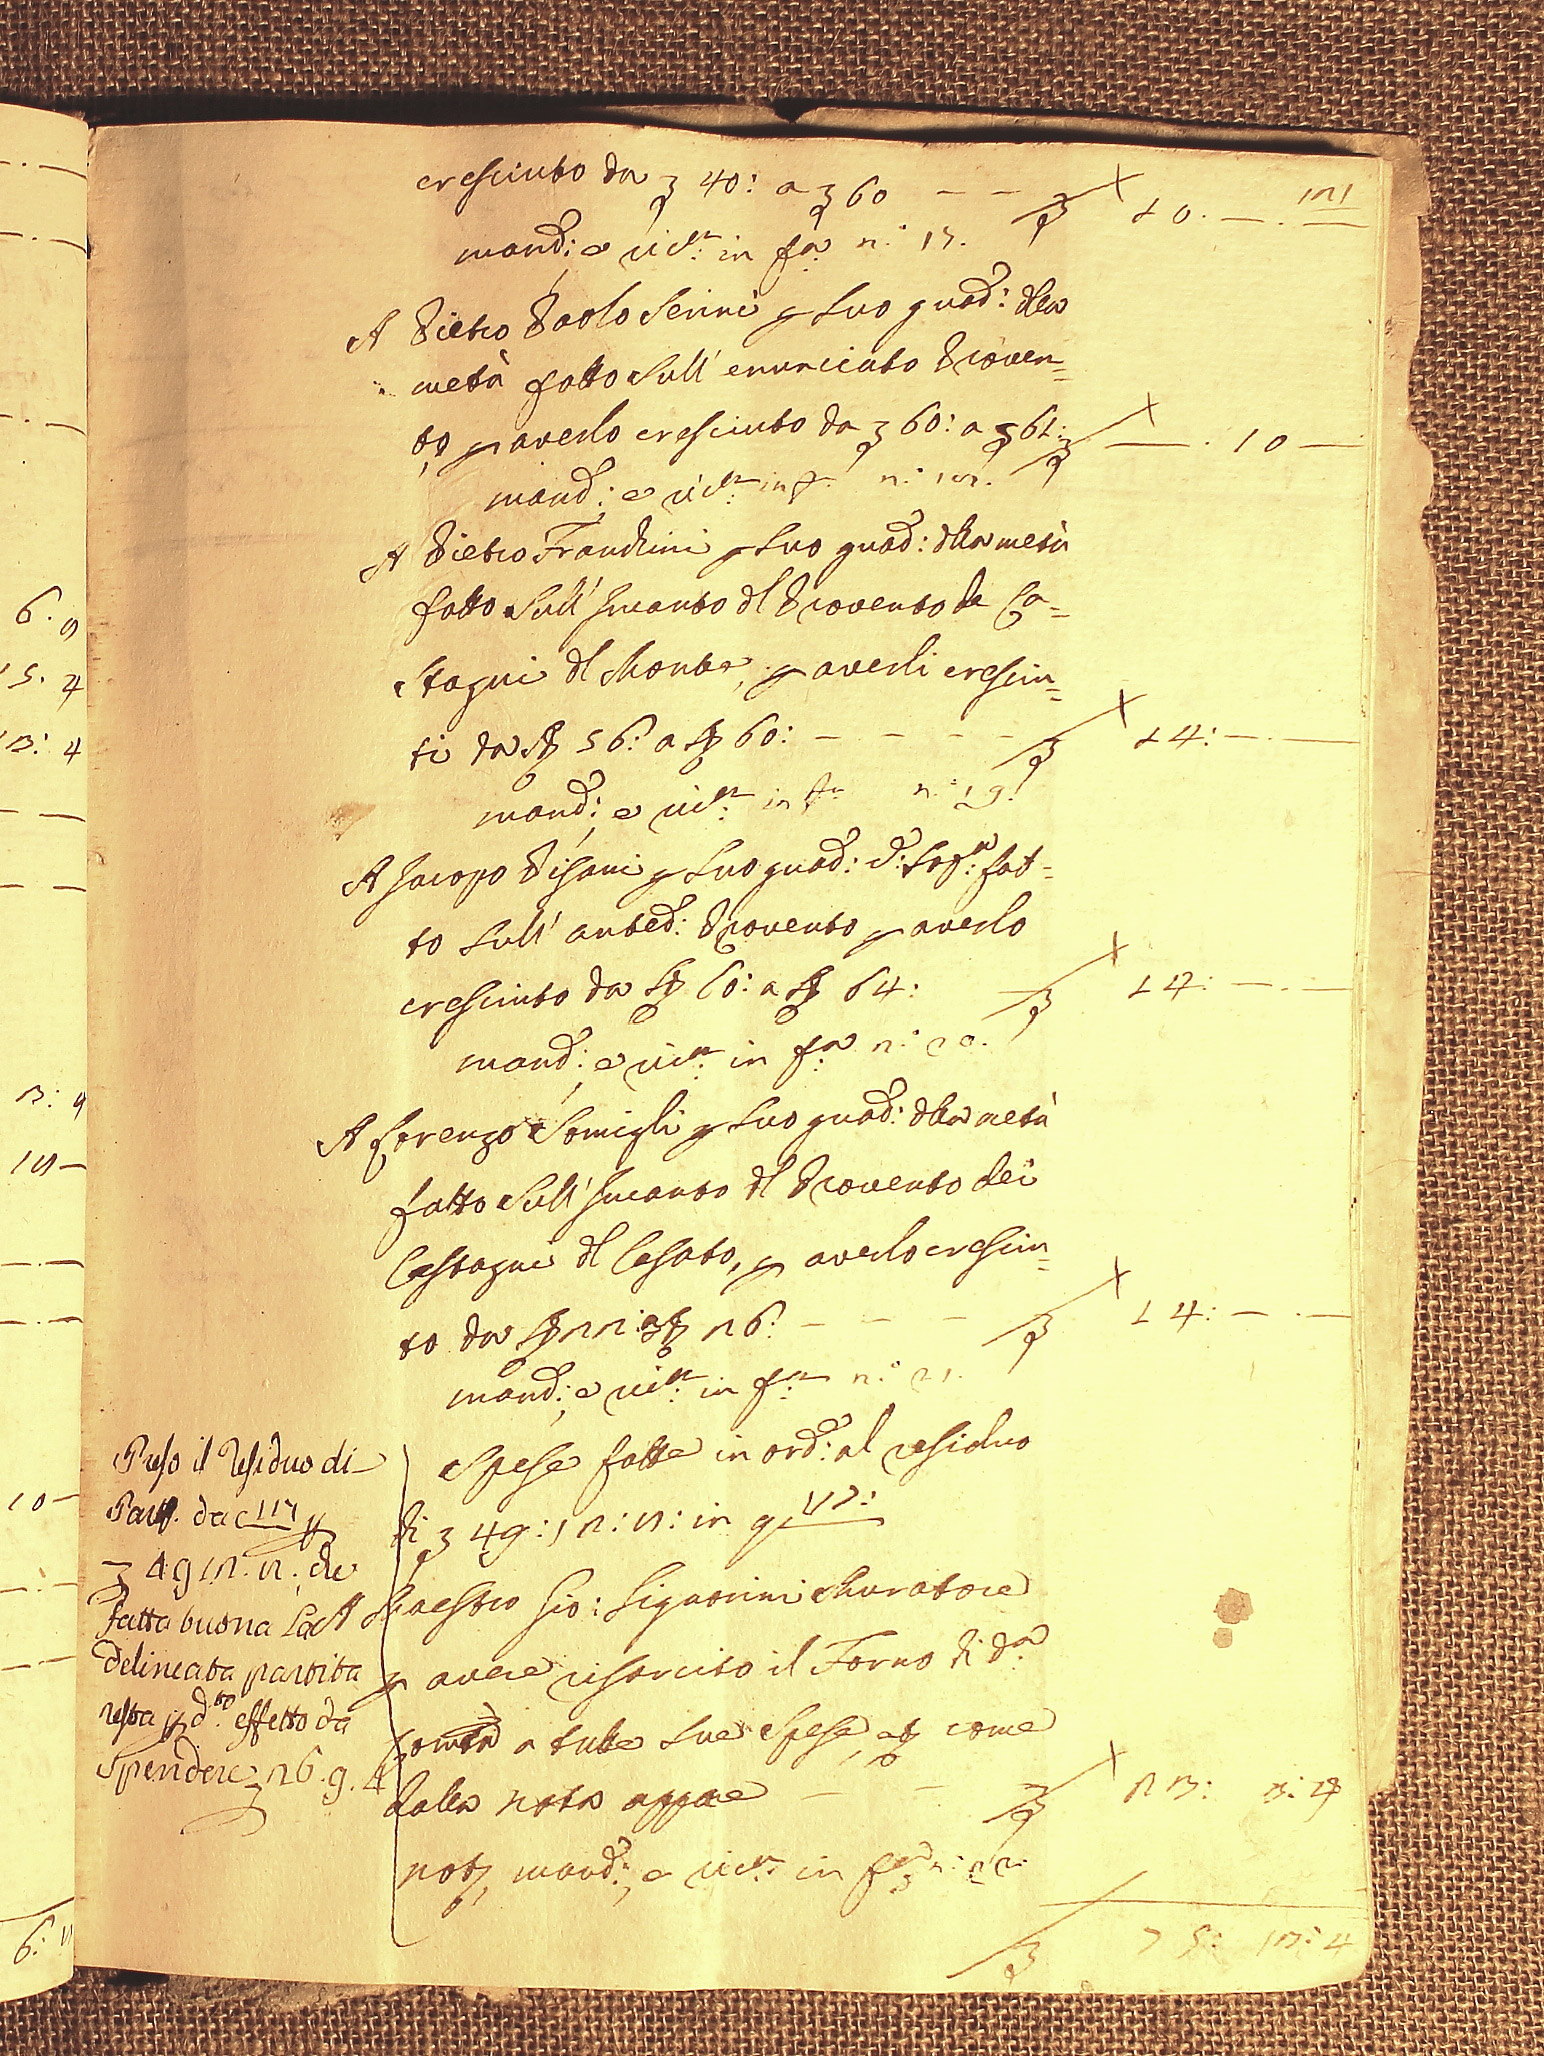 121
cresciuto da 40: a 60 — — 10. — . —
mand:, e ric.ta in f.a n.° 17.
A Pietro Paolo Serini p suo guad: dlla
metà fatto sull' enunciato Proven=
to, p averlo cresciuto da 60: a 61: — . 10 —
mand:, e ric.ta in f.a n.°
A Pietro Franchini p suo guad: dlla metà
fatto sull' Incanto dl Provento de Ca=
stagni dl Monte, p averli cresciu=
ti da 56: a 60: — — — 4: — . —
mand:, e ric.ta in f.a n.° 19.
A Jacopo Pisani p suo guad: d: fat=
to sull' anted: Provento p averlo
cresciuto da 60: a 64: 4: — . —
mand:, e ric.ta in f.a n.° 20.
A Lorenzo Somigli p suo guad: dlla metà
fatto sull' Incanto dl Provento dei
Castagni dl Casato, p averlo cresciu=
to da 22: a 26: — — — 4: — . —
mand:, e ric.ta in f.a n.° 21.
Spese fatte in ord: al residuo
di 49: 12: 2: in q
Maestro Gio: Signorini Muratore
p avere risarcito il Forno di d.a
a tutte sue spese, come
dalla nota appare — — 23: 3: 4
not, mand:, e ric.ta in f.a n.° 22.
75: 13: 4
Preso il residuo di
da c 117
49 12. 2. che
fatta buona la
delineata partita
resta p d.to effetto da
spendere 26. 9. 4
6. 9
5. 4
3: 4
3: 9
10 —
10 —
6: